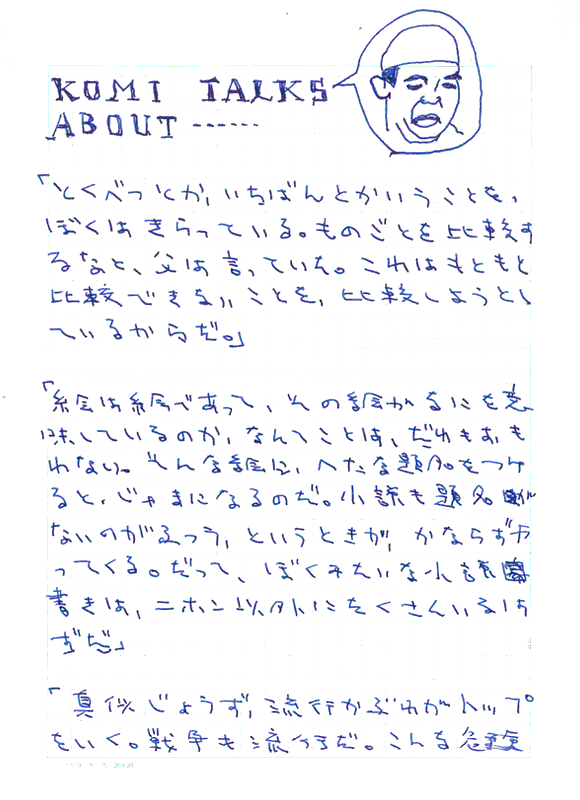 KOMI TALKS
ABOUT ------
「とくべつとか、いちばんとかいうことを、
ぼくはきらっている。ものごとを比較す
るなと、父は言っていた。これはもともと
比較できないことを、比較しようとし
ているからだ。」
「絵は絵であって、その絵がなにを意
味しているのか、なんてことは、だれもおも
わない。そんな絵に、へたな題名をつけ
ると、じゃまになるのだ。小説も題名が
ないのがふつう、というときが、かならずや
ってくる。だって、ぼくみたいな小説
書きは、ニホン以外にたくさんいるは
ずだ」
「真似じょうず、流行かぶれがトップ
をいく。戦争も流行だ。こんな危険